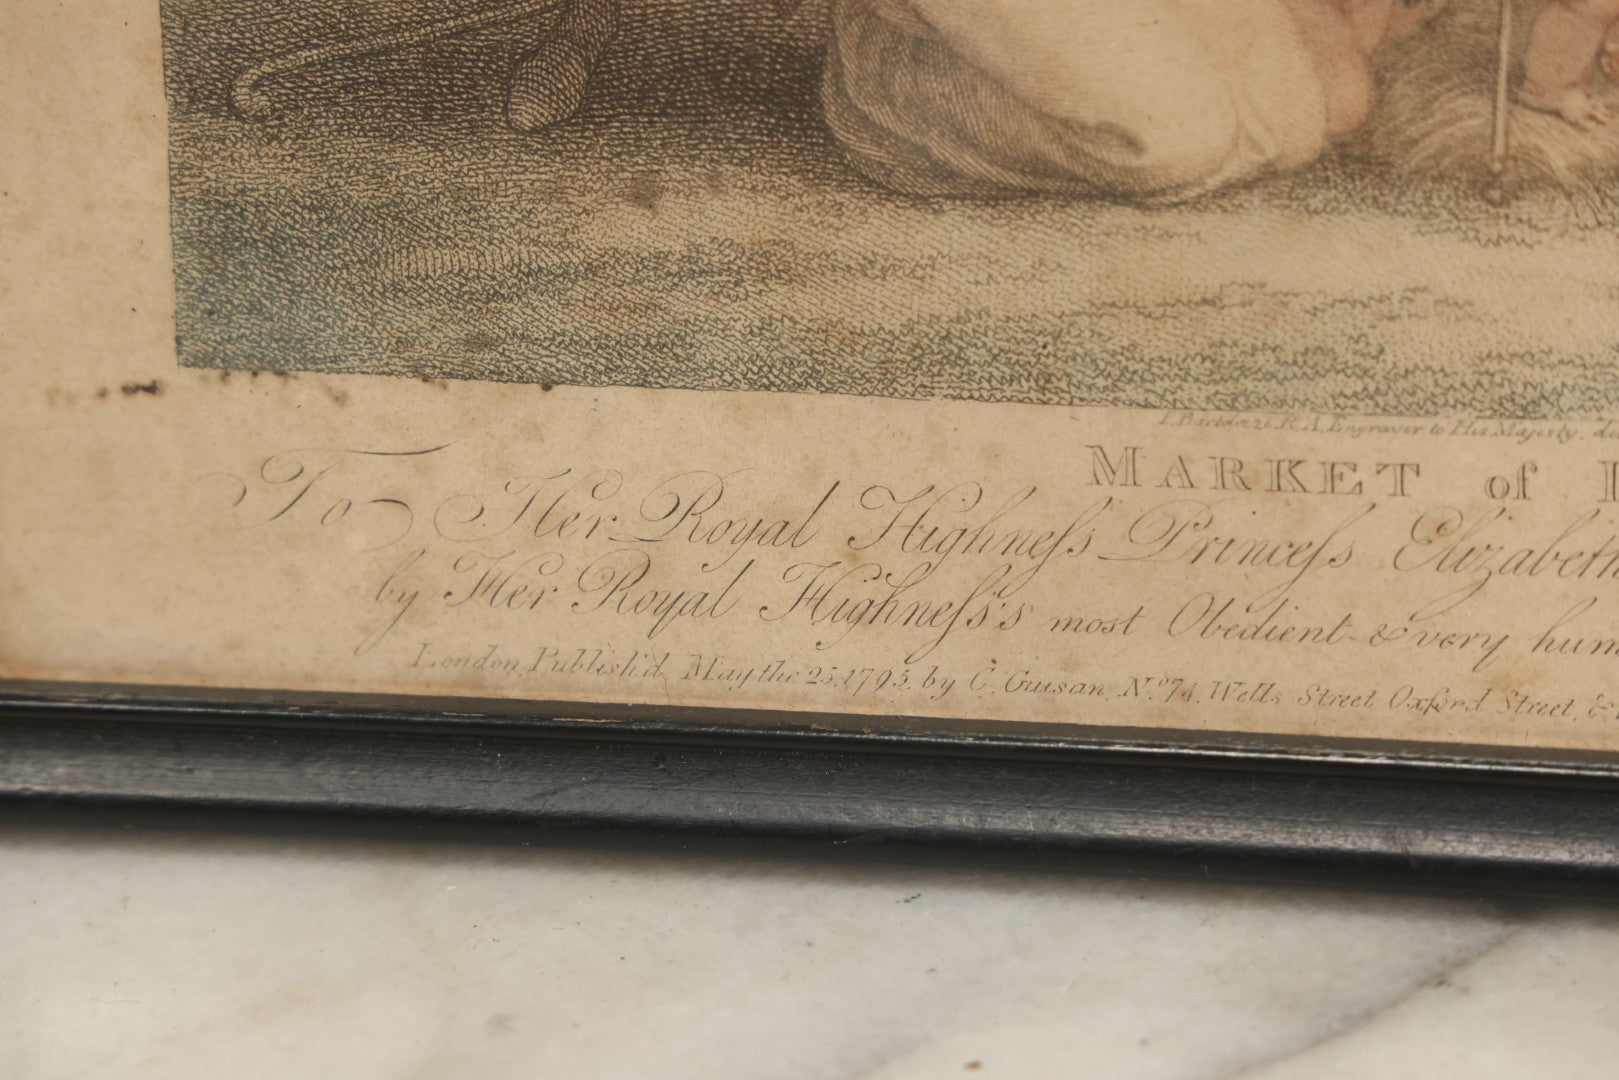 F. Bartolozzi, R.A. Engraver to His Majesty, de
MARKET of
To Her Royal Highneſs Princeſs Elizabeth
by Her Royal Highneſs's most Obedient & very hum
London Publish'd May the 25, 1795, by C. Guisan, No. 74, Wells Street Oxford Street, &